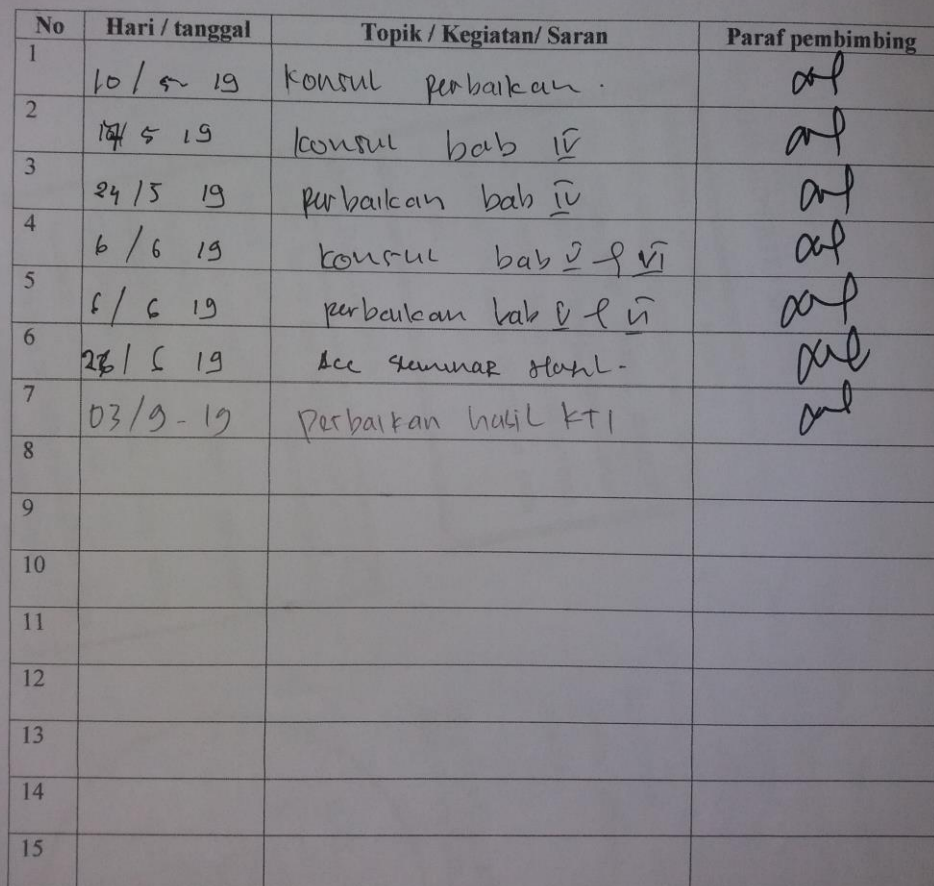 No Hari / tanggal Topik / Kegiatan/ Saran Paraf pembimbing
1 10 / 5 19 konsul perbaikan.
2 17/ 5 19 konsul bab IV
3 24 / 5 19 perbaikan bab IV
4 6 / 6 19 konsul bab V & VI
5 6 / 6 19 perbaikan bab V & VI
6 / 6 19 Acc seminar Hasil.
7 03/9-19 perbaikan hasil KTI
8
9
10
11
12
13
14
15